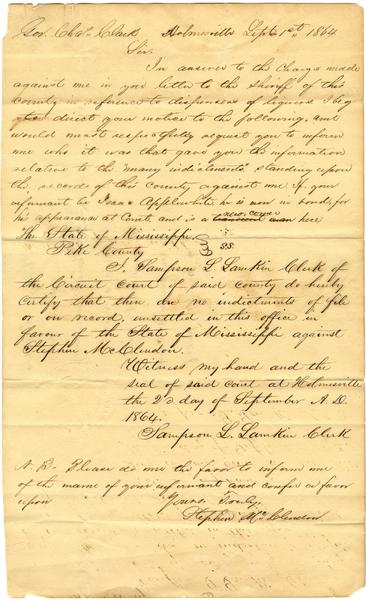 Gov. Chas Clark Holmesville Sept 1st, 1864
Sir.
In answer to the charge made
against me in your letter to the Sheriff of this
county in reference to dispensers of liquors I beg
direct your notice to the following, and
would most respectfully request you to inform
me who it was that gave you the information
relative to the "many indictments" standing upon
the records of this county against me if your
informant be Applewhite he is now in bonds for
his appearance at Court and is a here
The State of Mississippi
Pike County SS
I, Sampson L. Lamkin Clerk of
the Circuit Court of said county do hereby
certify that there are no indictments of file
or on record, unsettled in this office in
favour of the State of Mississippi against
Stephen McClendon.
Witness my hand and the
seal of said Court at Holmesville
the 2d day of September A.D.
1864.
Sampson L. Lamkin Clerk
N.B. Please do me the favor to inform me
of the name of your informant and confer a favor
upon Yours Truly,
Stephen McClendon